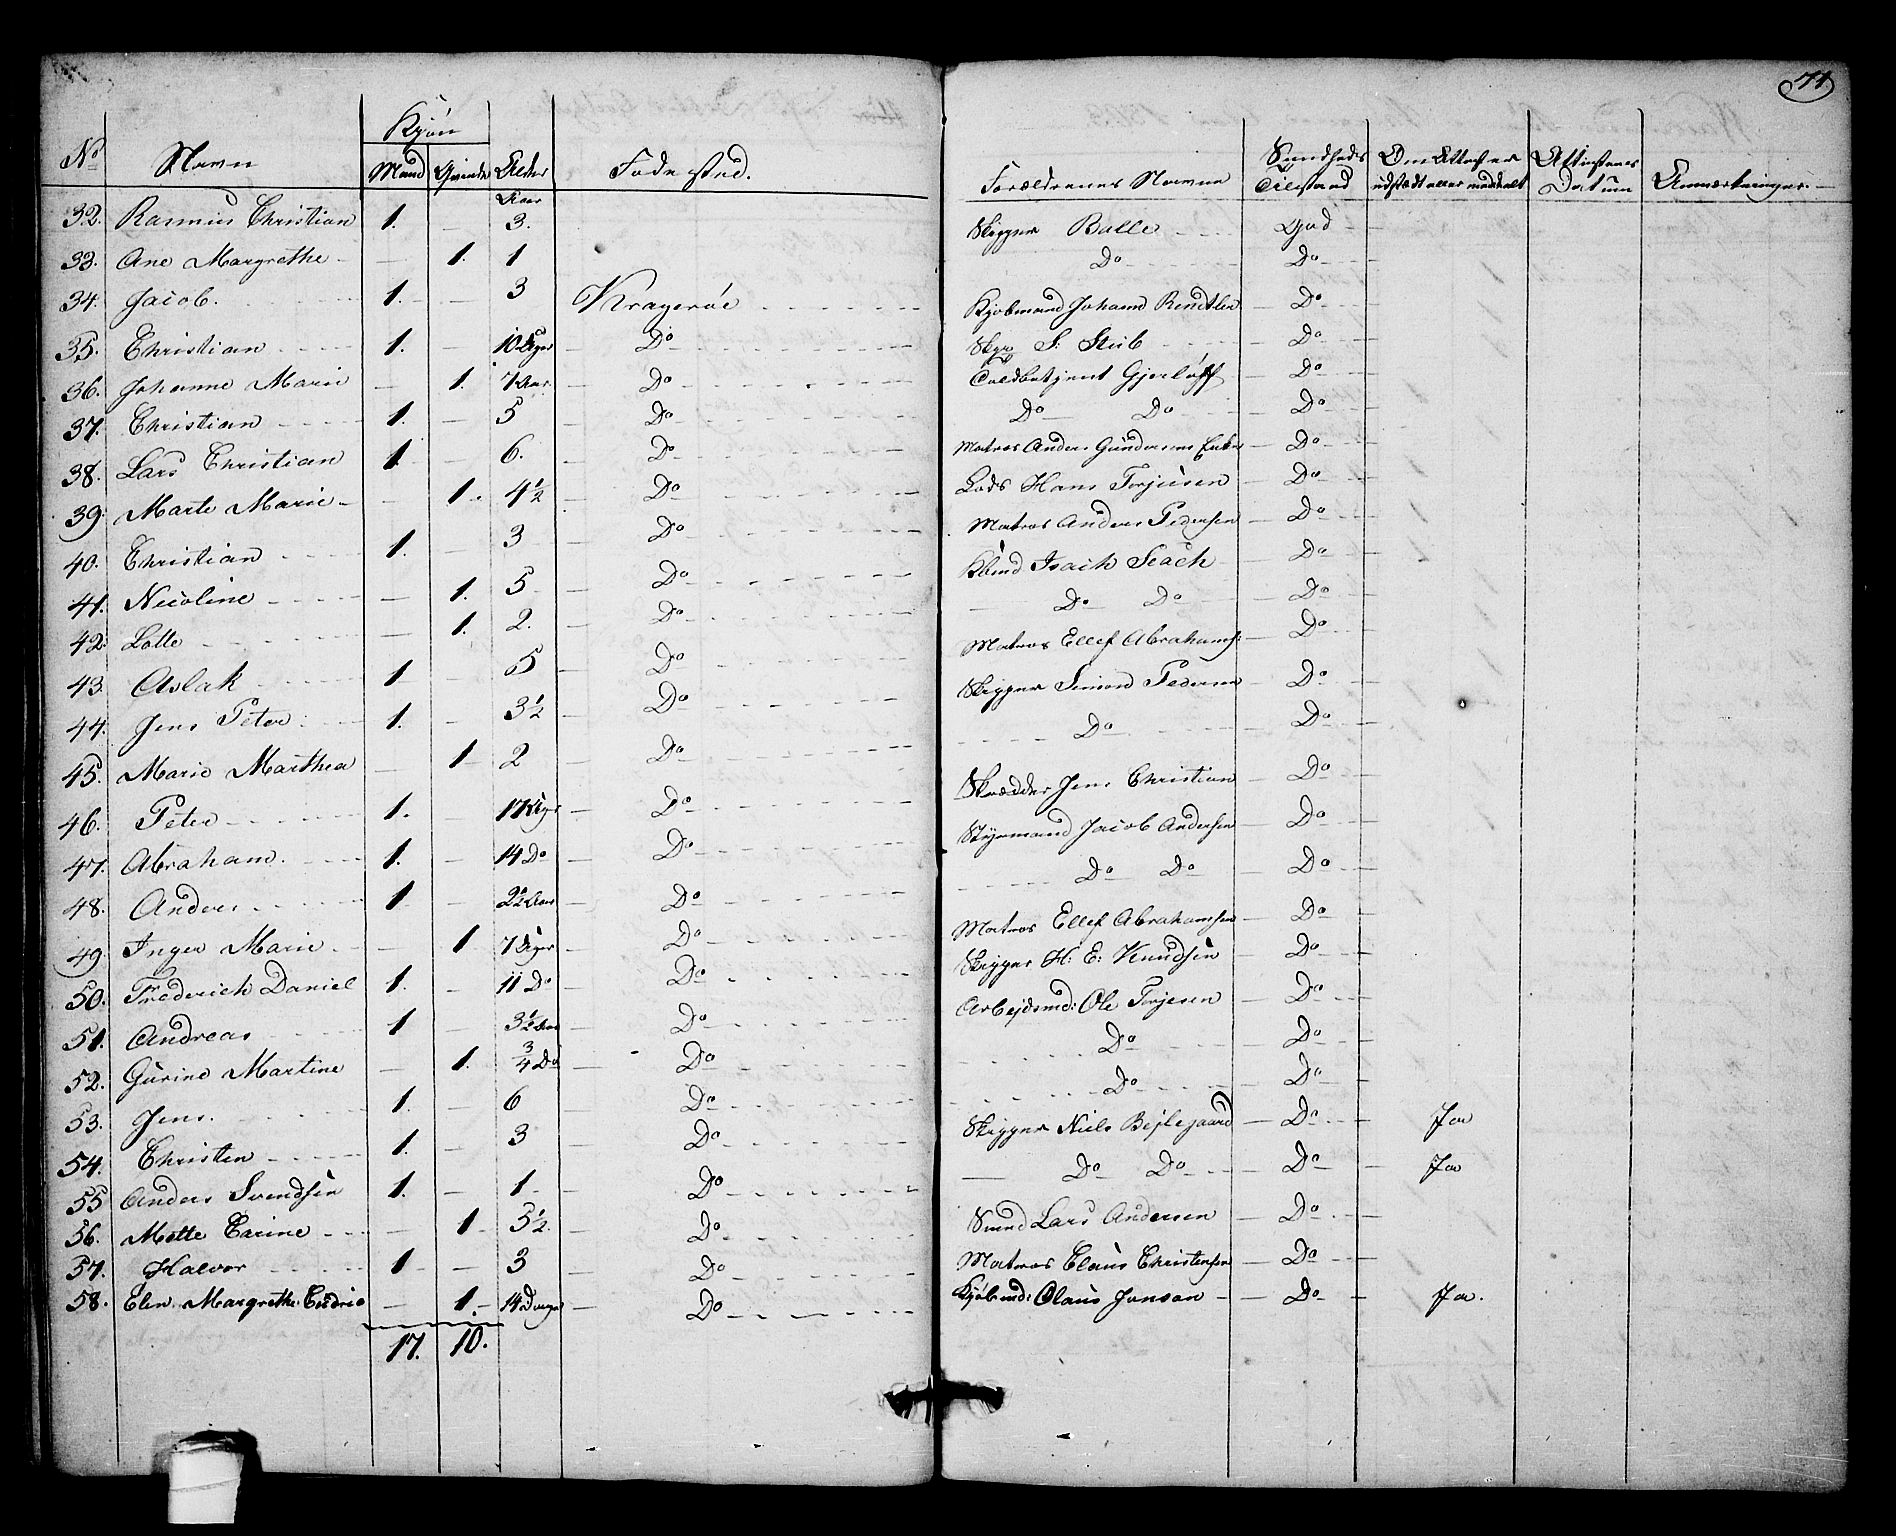 71.
Kjøn
No Navn Mand Qvinde Alder Fødested. Forældrenes Navne Sundheds Tilstand Om Attest er udstædt eller meddelt Attestens Datum Anmærkninger.
Aar
32. Rasmus Christian 1. — 3. Skipper Balle God
33. Ane Margrethe — 1. 1 Do Do
34. Jacob. 1. — 3 Kragerøe Kjøbmand Johann Rendtler Do
35. Christian 1. 10 Uger Do Skpr S: Stub Do
36. Johanne Marie — 1. 7 Aar Do Toldbetjent Gjerløff Do
37. Christian 1. — 5 Do Do Do Do
38. Lars Christian 1 — 6. Do Matros Anders Gundersens Enke Do
39. Marte Marie — 1. 4½ Do Lods Hans Torjusen Do
40. Christian 1. — 3 Do Matros Anders Pedersen Do
41. Nicoline — 1. 5 Do Kbmd Isach Isach Do
42. Lotte — 1. 2. Do — Do Do Do
43. Aslak 1 — 5 Do Matros Ellef Abrahams: Do
44. Jens Peter 1. — 3½ Do Skipper Simon Pedersen Do
45. Marie Marthea — 1 2 Do Do Do
46. Peter 1. 17 Uger Do Skrædder Jens Christian Do
47. Abraham. 1. — 14 Do Do Styrmand Jacob Andersen Do
48. Anders 1 — 2½ Aar Do Do Do Do
49. Inger Marie — 1 7 Uger Do Matros Ellef Abrahamsen Do
50. Frederich Daniel 1. — 11 Do Do Skipper H: E: Knudsen Do
51. Andreas 1 — 3½ Aar Do Arbejdsmd: Ole Torjesen Do
52. Gurine Martine — 1. ¾ Do Do Do Do
53. Jens. 1. — 6 Do Do Do
54. Christen 1. — 3 Do Skipper Niels Bejlegaard Do Ja
55 Anders Svendsen 1. — 1 Do — Do Do Do Ja
56. Mette Carine — 1 5½. Do Smed Lars Andersen Do
57. Halvor 1 — 3 Do Matros Claus Christensen Do
58. Elen Margrethe Cedrie — 1. 14 Dage Do Kjøbmd: Claus Jonsen Do Ja.
17. 10.